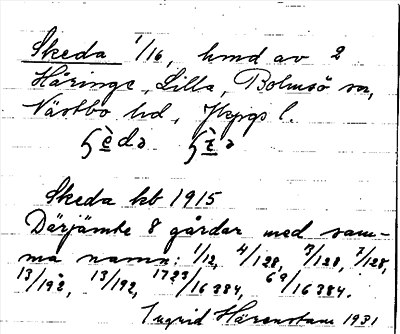 Skeda 1/16, hmd av 2
Håringe, Lilla, Bolmsö sn,
Västbo hd, Jkpgs l.
Skeda kb 1915
Därjämte 8 gårdar med sam-
ma namn: 1/12, 4/128, 3/128, 7/128,
13/192, 13/192, 1723/16384, 69/16384.
Ingrid Härenstam 1931